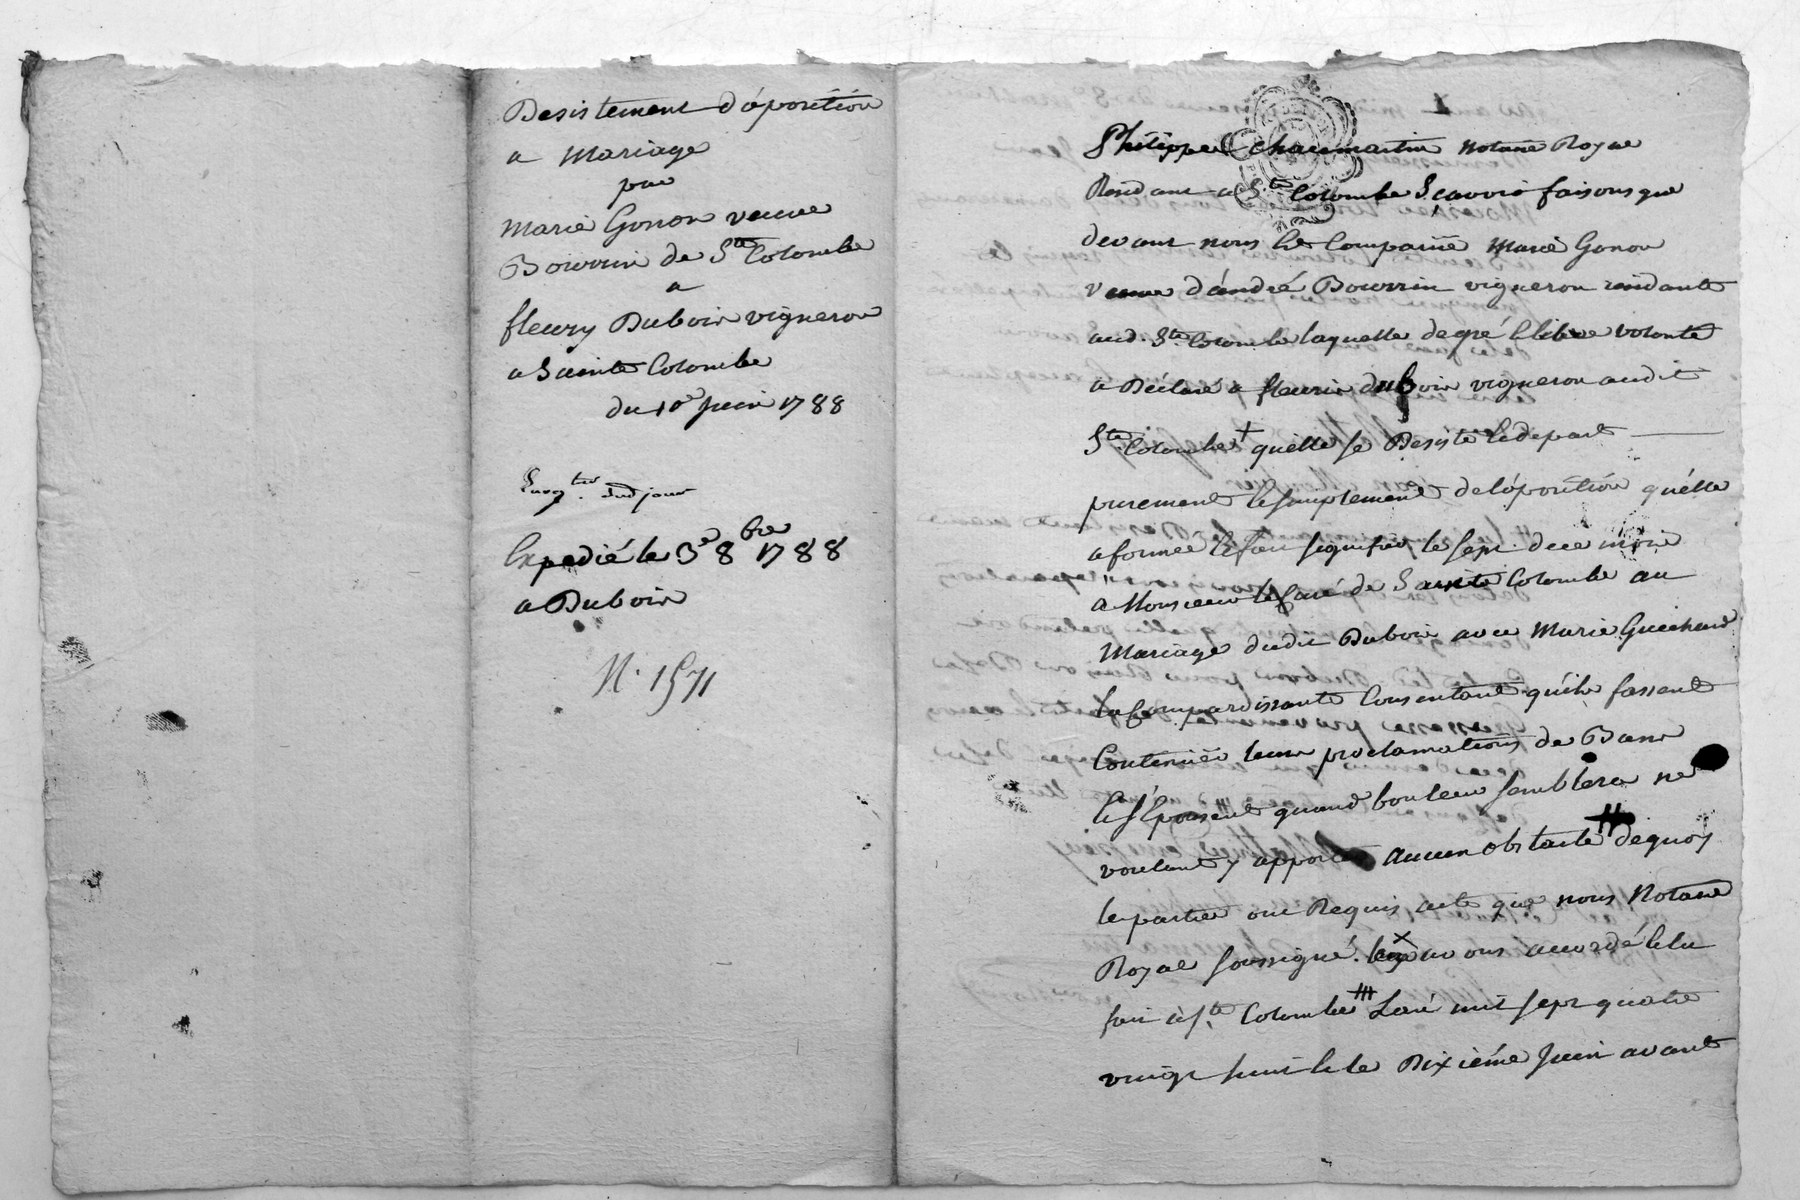 Desistement d'óposition
a Mariage
par
Marie Gonon veuve
Bourrin de Ste Colombe
a
fleury Dubois vigneron
a Sainte Colombe
du 10e juin 1788
dud jour
Expedié le 3e 8bre 1788
a Dubois
N. 1571
1
Philippe Chaumartin notaire Royal
Resid ant a Ste Colombe Scavoir faisons que
devant nous he Comparüe Marie Gonon
veuve d'andré Bourrin vigneron residante
aud. Ste Colombe laquelle de gré & libre volonté
a Déclaré a fleurie dubois vigneron audit
Ste Colombe + quélle se Desiste & depart
purement & simplement de lóposition quélle
a formée & fait signifier le sept du mois
a Monsieur le Curé de Sainte Colombe au
Mariage dudit Dubois avec Marie Guichard
la Comparoissante Consentant quíls fassent
Continüer leurs proclamations de Bans
& s'Epousent quand bon leur semblera ne
voulant y apporter aucun obstacle # de quoy
les parties ont Requis acte que nous Notaire
Royal soussigné. x avons accordé & lu
fait à Ste Colombe Lan mil sept quatre
vingt huit & le Dixiéme Juin avant